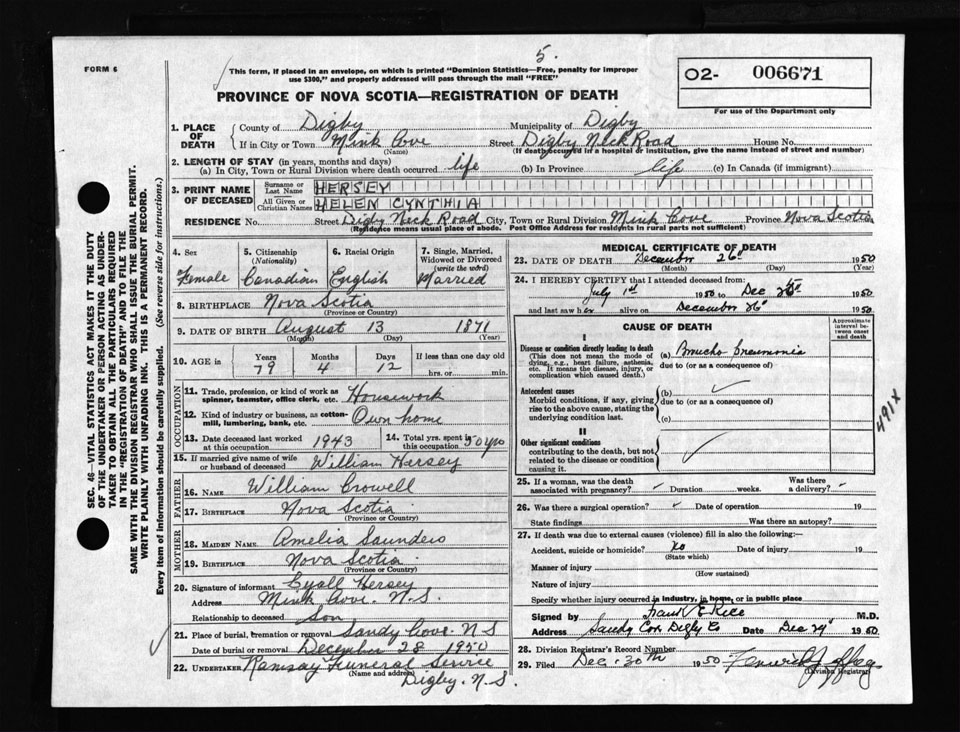 5.
FORM 6
This form, if placed in an envelope, on which is printed "Dominion Statistics—Free, penalty for improper
use $300," and properly addressed will pass through the mail "FREE"
O2- 006671
For use of the Department only
PROVINCE OF NOVA SCOTIA—REGISTRATION OF DEATH
1. PLACE OF DEATH
County of Digby Municipality of Digby
If in City or Town Mink Cove Street Digby Neck Road House No.
(Name) (If death occurred in a hospital or institution, give the name instead of street and number)
2. LENGTH OF STAY (in years, months and days)
(a) In City, Town or Rural Division where death occurred life (b) In Province life (c) In Canada (if immigrant)
3. PRINT NAME OF DECEASED
Surname or Last Name HERSEY
All Given or Christian Names HELEN CYNTHIA
RESIDENCE No. Street Digby Neck Road City, Town or Rural Division Mink Cove Province Nova Scotia
(Residence means usual place of abode. Post Office Address for residents in rural parts not sufficient)
4. Sex Female
5. Citizenship (Nationality) Canadian
6. Racial Origin English
7. Single, Married, Widowed or Divorced (write the word) Married
8. BIRTHPLACE Nova Scotia
(Province or Country)
9. DATE OF BIRTH August 13 1871
(Month) (Day) (Year)
10. AGE in Years 79 Months 4 Days 12 If less than one day old
hrs. or min.
OCCUPATION
11. Trade, profession, or kind of work as spinner, teamster, office clerk, etc. Housework
12. Kind of industry or business, as cotton-mill, lumbering, bank, etc. Own home
13. Date deceased last worked at this occupation 1943
14. Total yrs. spent in this occupation 50 yrs
15. If married give name of wife or husband of deceased William Hersey
FATHER
16. NAME William Crowell
17. BIRTHPLACE Nova Scotia
(Province or Country)
MOTHER
18. MAIDEN NAME Amelia Saunders
19. BIRTHPLACE Nova Scotia
(Province or Country)
20. Signature of informant Hersey
Address Mink Cove. N.S.
Relationship to deceased Son
21. Place of burial, cremation or removal Sandy Cove. N S
Date of burial or removal December 28 1950
22. UNDERTAKER Ramsay Funeral Service
(Name and address)
Digby. N.S.
MEDICAL CERTIFICATE OF DEATH
23. DATE OF DEATH December 26th 1950
(Month) (Day) (Year)
24. I HEREBY CERTIFY that I attended deceased from:
July 1st 1950 to Dec 26th 1950
and last saw her alive on December 26th 1950
CAUSE OF DEATH
Approximate interval between onset and death
I
Disease or condition directly leading to death
(This does not mean the mode of dying, e.g., heart failure, asthenia, etc. It means the disease, injury, or complication which caused death.)
(a) Broncho Pneumonia
due to (or as a consequence of)
Antecedent causes
Morbid conditions, if any, giving rise to the above cause, stating the underlying condition last.
(b)
due to (or as a consequence of)
(c)
II
Other significant conditions
contributing to the death, but not related to the disease or condition causing it.
491X
25. If a woman, was the death associated with pregnancy? Duration weeks. Was there a delivery?
26. Was there a surgical operation? Date of operation 19
State findings Was there an autopsy?
27. If death was due to external causes (violence) fill in also the following:—
Accident, suicide or homicide? No Date of injury 19
(State which)
Manner of injury
(How sustained)
Nature of injury
Specify whether injury occurred in industry, in home, or in public place
Signed by Frank E Rice M.D.
Address Sandy Cove Digby Co Date Dec 29th 1950
28. Division Registrar's Record Number
29. Filed Dec. 30th 1950
(Division Registrar)
SEC. 46—VITAL STATISTICS ACT MAKES IT THE DUTY
OF THE UNDERTAKER OR PERSON ACTING AS UNDER-
TAKER TO OBTAIN ALL THE PARTICULARS REQUIRED
IN THE "REGISTRATION OF DEATH" AND TO FILE THE
SAME WITH THE DIVISION REGISTRAR WHO SHALL ISSUE THE BURIAL PERMIT.
WRITE PLAINLY WITH UNFADING INK. THIS IS A PERMANENT RECORD.
Every item of information should be carefully supplied. (See reverse side for instructions.)